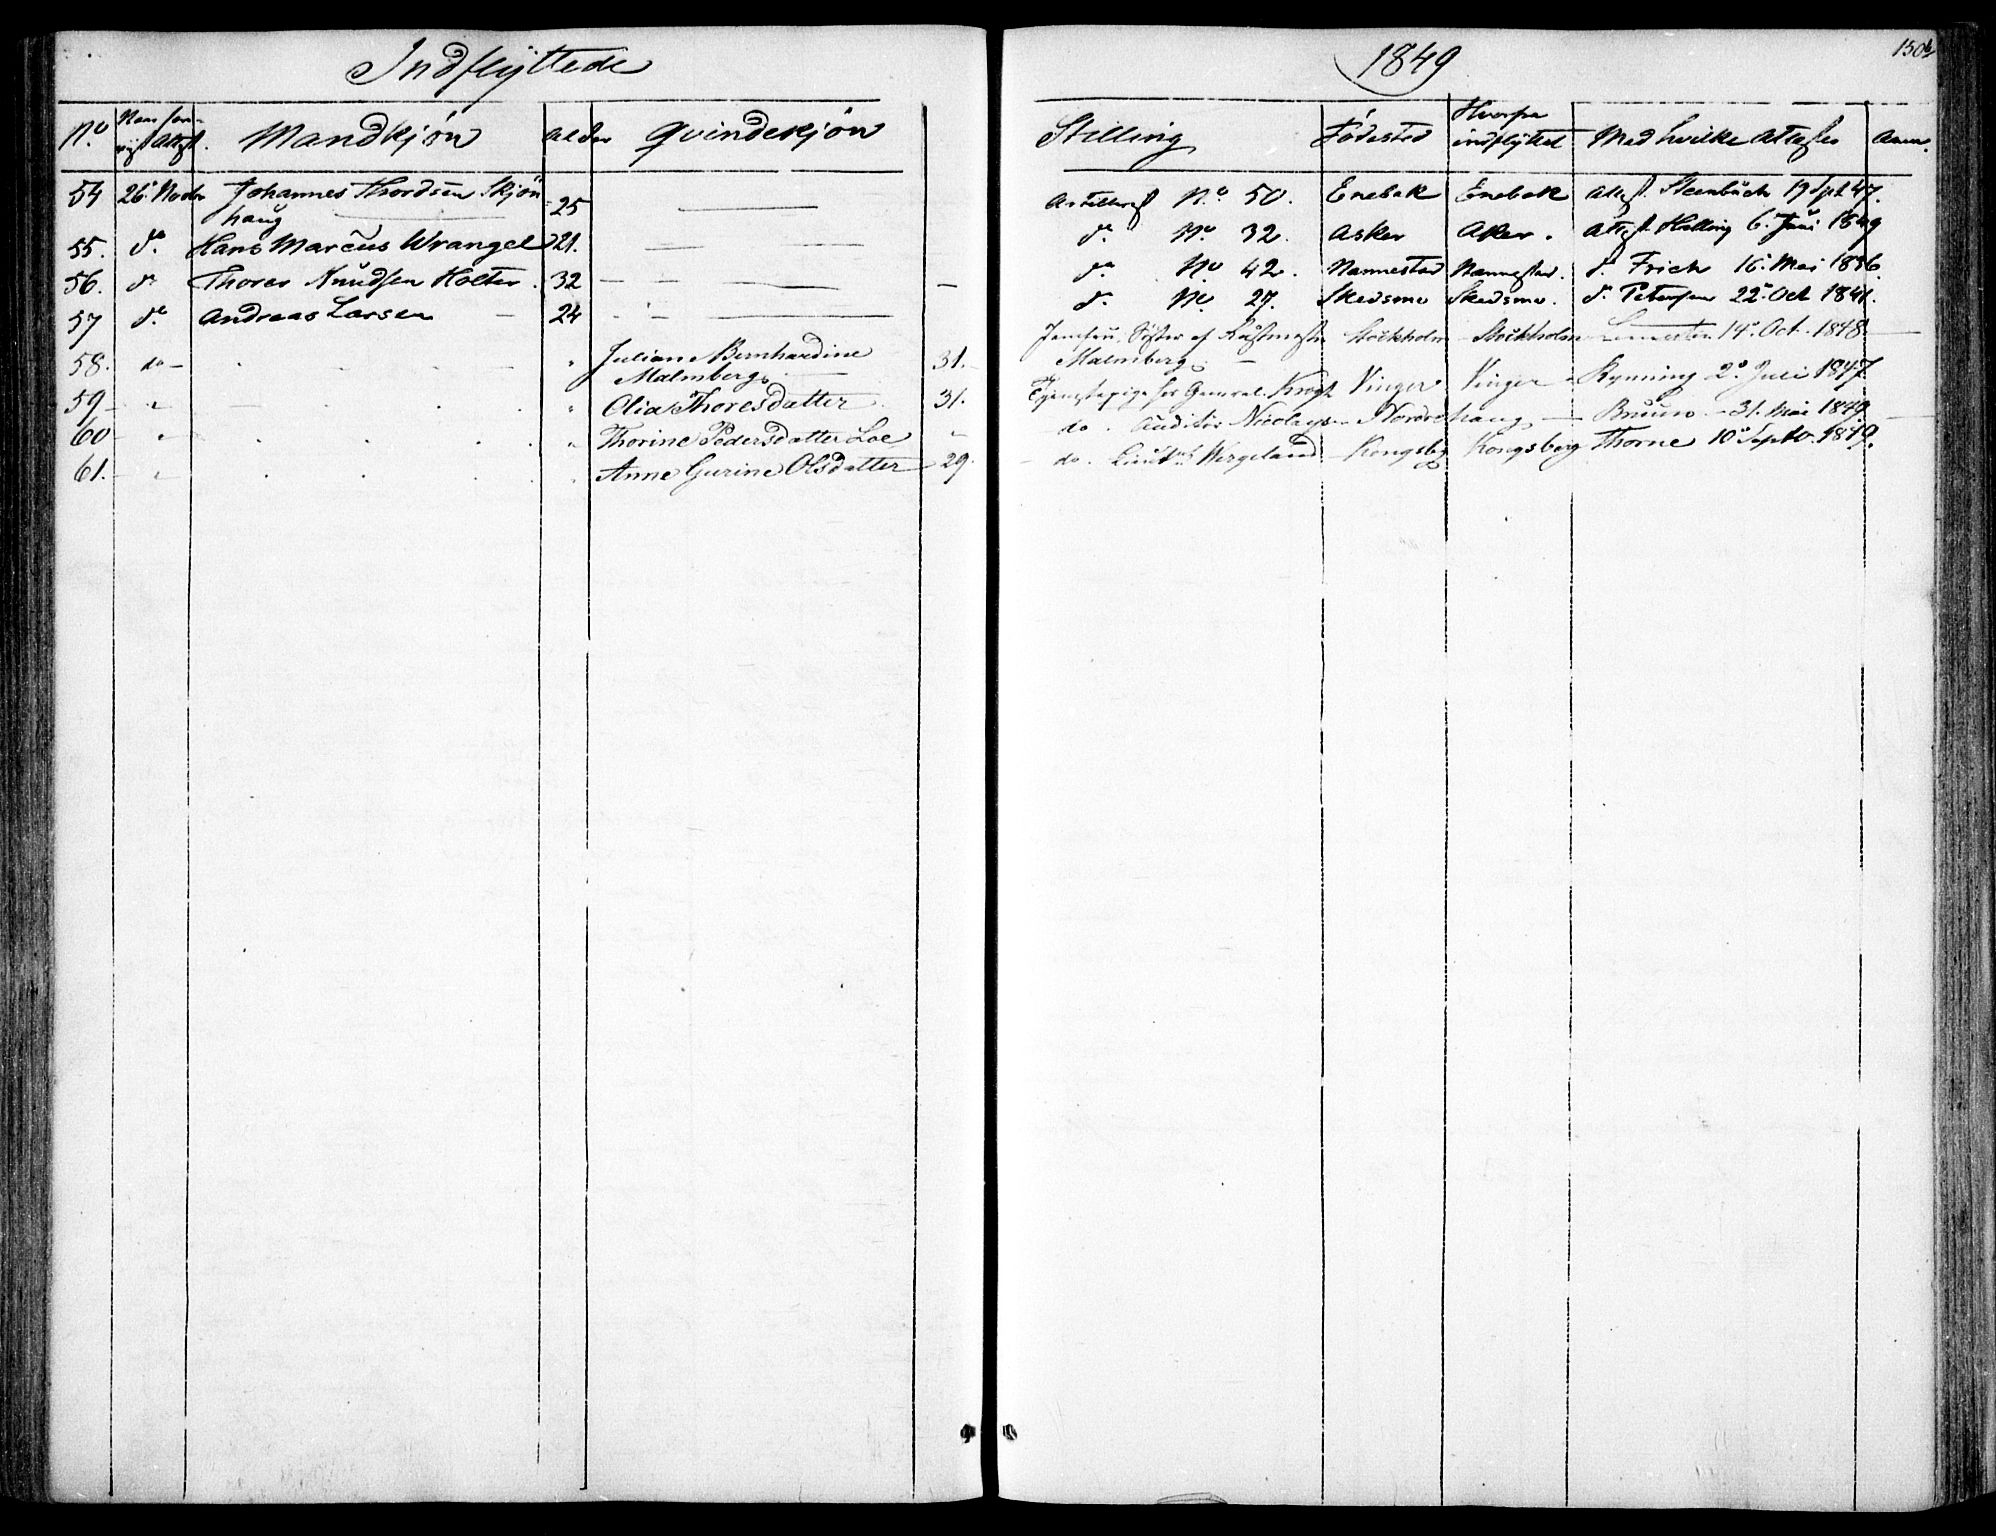 Indflyttede
1849
150b
No. Mandkjøn Alder Qvindekjøn
Stilling Fødested Hvorfra indflyttet Med hvilke Attester Anm.
54 26 Novbr Johannes Thordsen Skjøn
haug 25
Artillerist No. 50. Enebak Enebak Attest. Steenbuch 19 Sept 47.
55. do. Hans Marcus Wrangel 21.
do. No. 32. Asker Aker. Attest. Halling 6. Juni 1849
56. do Thores Knudsen Holter. 32
do. No 42. Nannestad Nannestad. do. Frich 16. Mai 1836.
57 do. Andreas Larsen 24
do. No. 27. Skedsmo Skedsmo. do. Petersen 22. Oct 1841.
58. do Juliane Bernhardine
Malmberg. 31.
Jomfru, Søster af
Malmberg Stockholm Stockholm 14. Oct. 1848.
59 " Olia Thoresdatter 31.
Tjenestepige hos General Krogh Vinger Vinger Rynning 2. Juli 1847.
60 " Thorine Pedersdatter Loe "
do. Auditør Nicolaysen Norderhaug Bruun 31. Mai 1849
61. " Anne Gurine Olsdatter 29.
do. Lieutnt Wergeland Kongsbg Kongsberg Thorne 10 Septb. 1849.